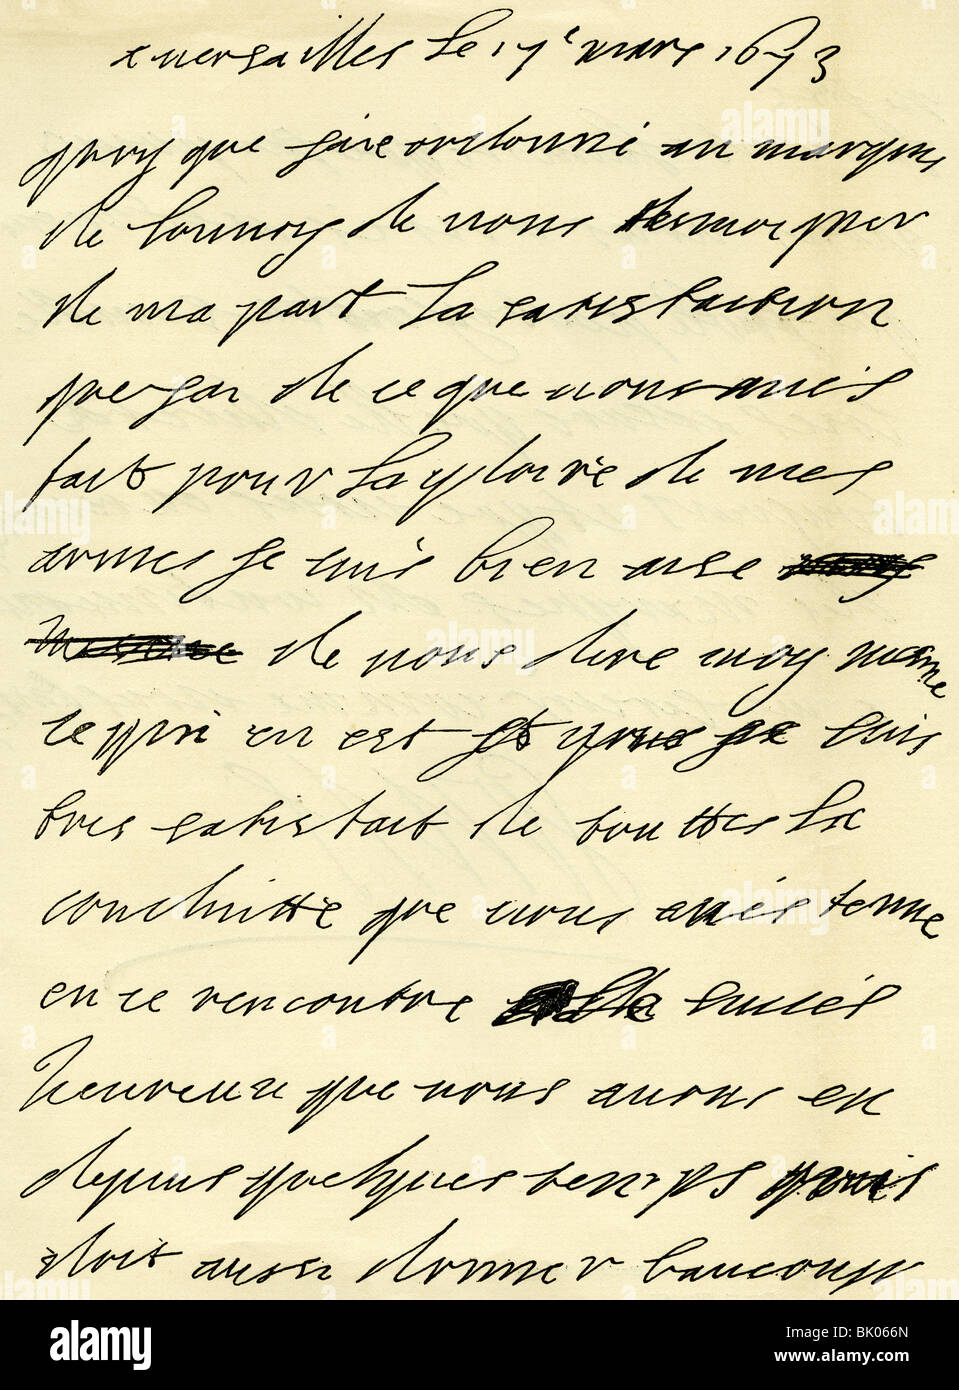 a versailles le 17e mars 1673
quoy que j'aie ordonné au marquis
de louuoy de uous temoigner
de ma part la satisfaction
que jai de ce que uous aues
fait pour la gloire de mes
armes je suis bien aise
de uous dire moy mesme
ce qui en est et que je suis
tres satisfait de touttes la
conduitte que uous aués tenue
en ce rencontre succés
heureux que nous auons eu
depuis quelques temps
doit aussi donner baucoup
alamy
Image ID: BK066N
www.alamy.com